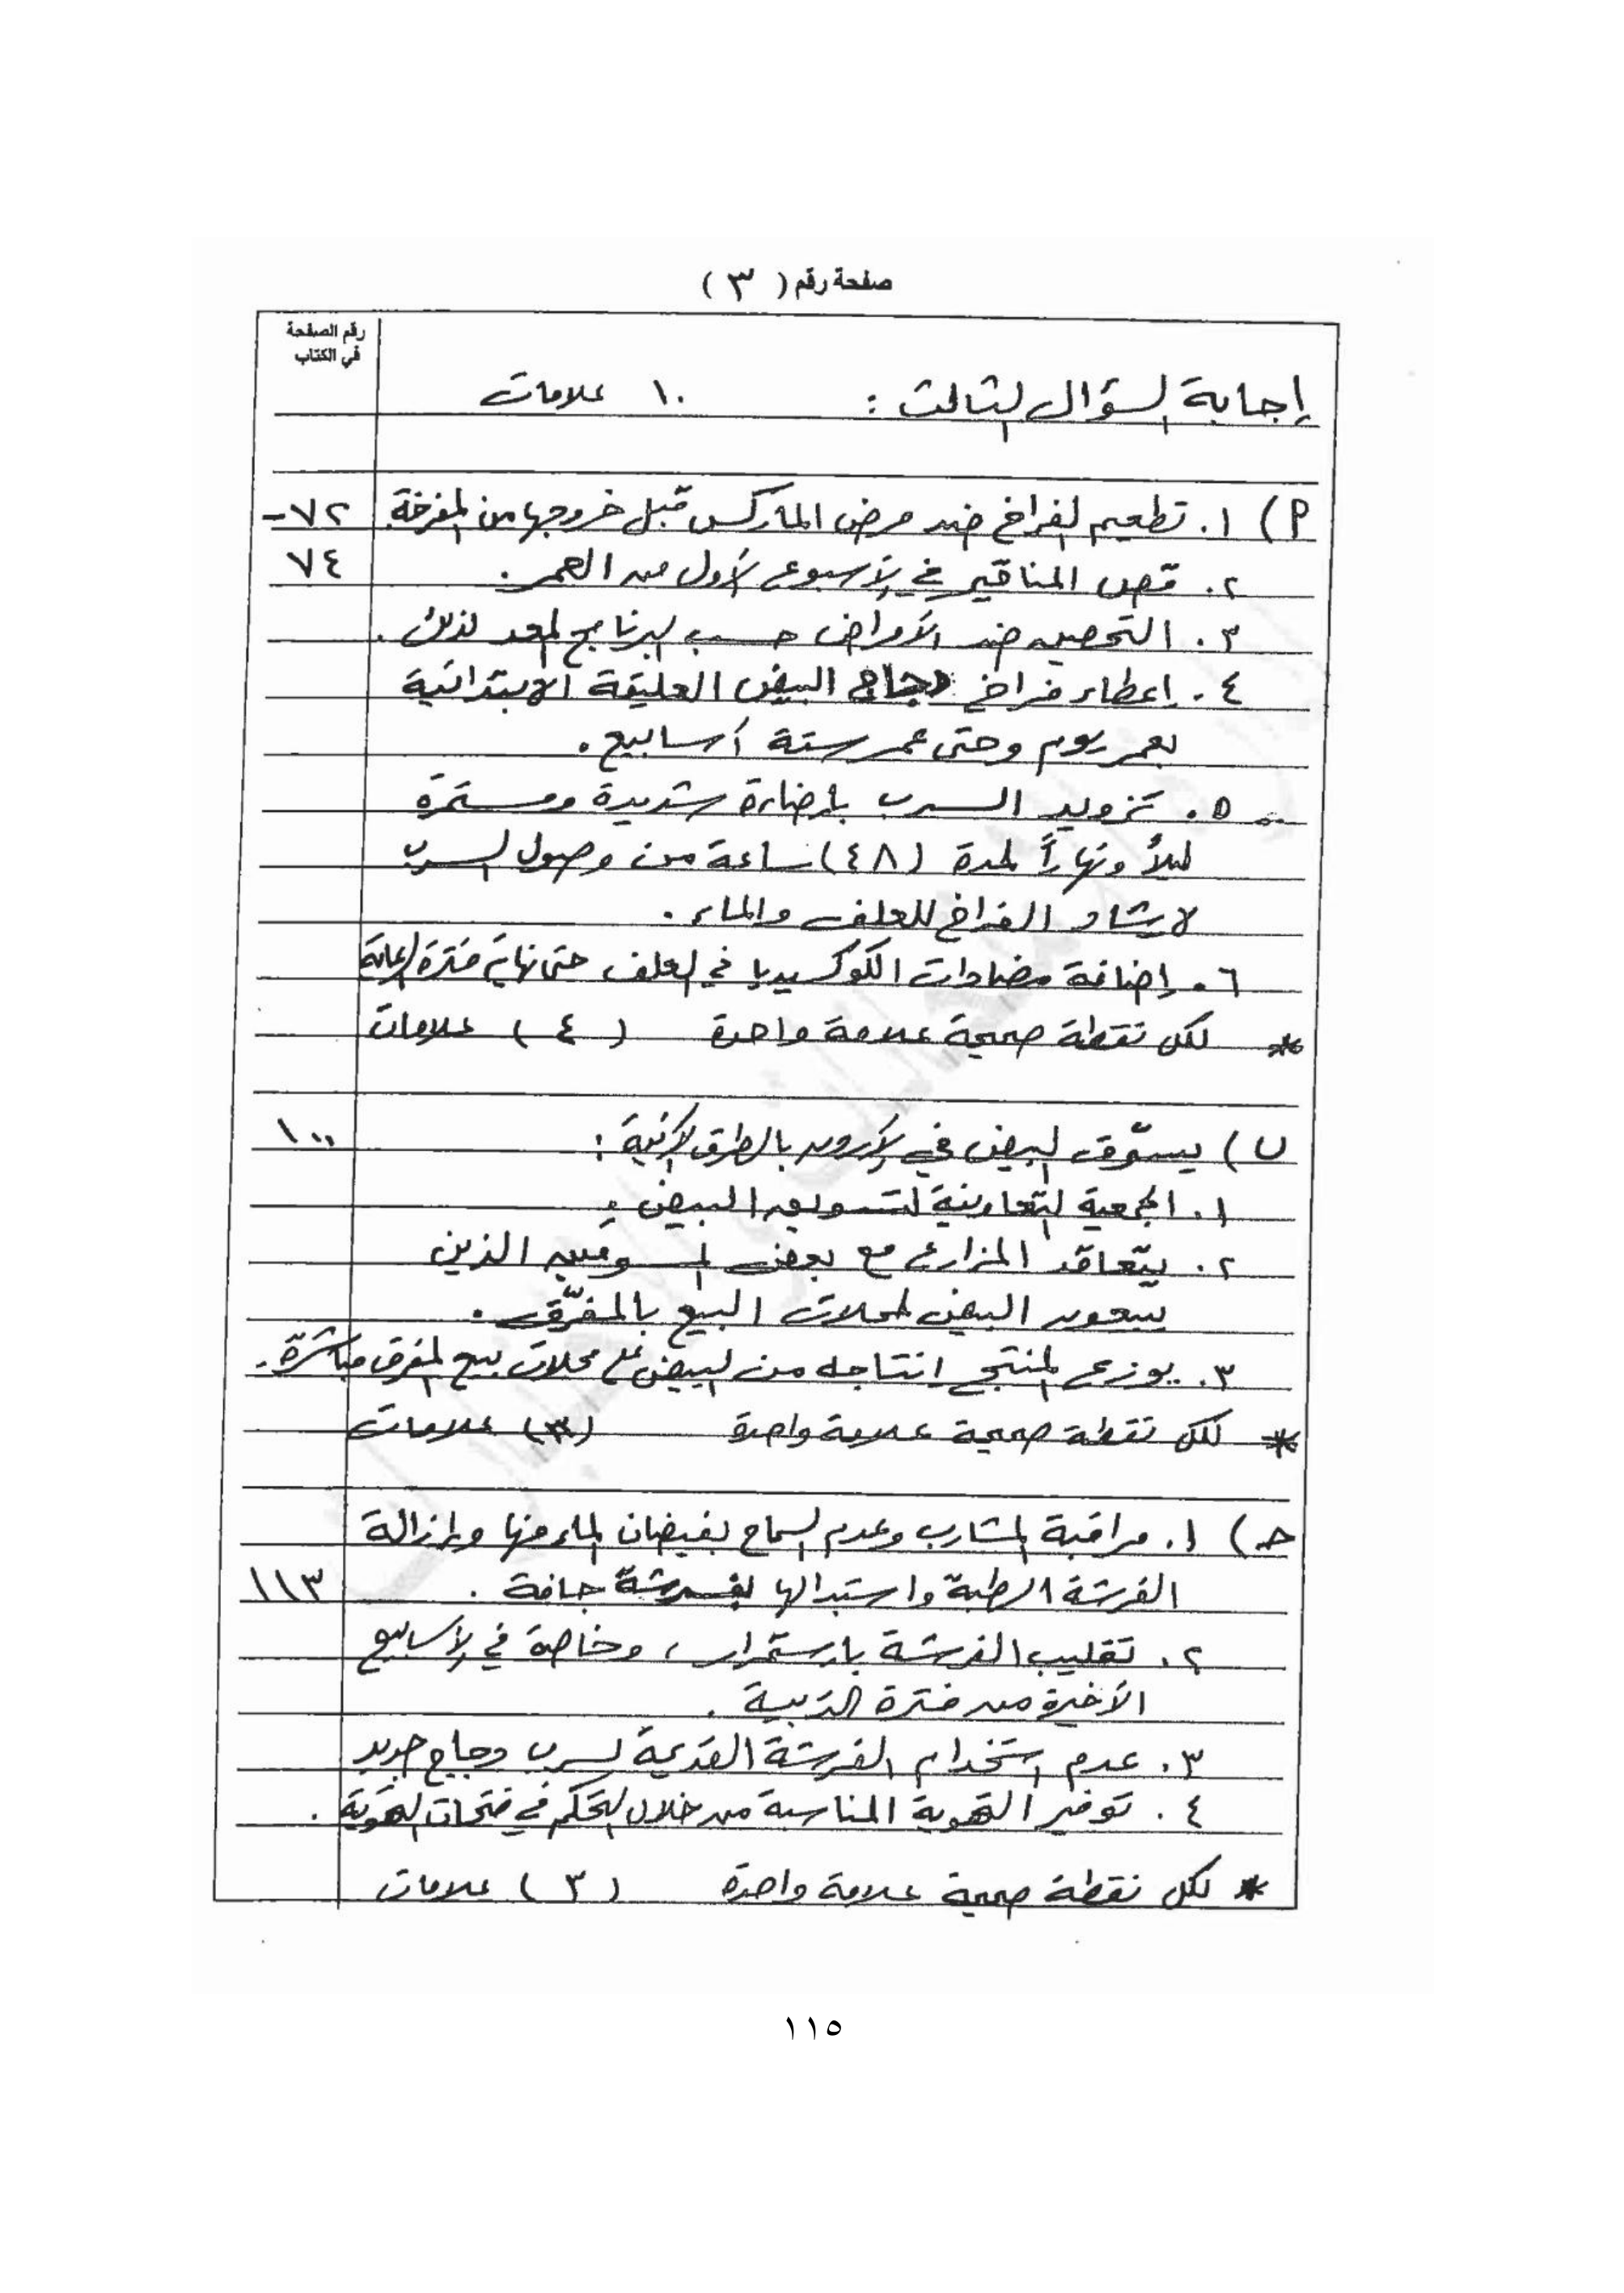 صفحة رقم ( ٣ )
رقم الصفحة
في الكتاب
إجابة السؤال الثالث : ١٠ علامات
أ ) ١. تطعيم الفراخ ضد مرض الماركس قبل خروجها من المفرخة. ٧٢-
٢. قص المناقير في الأسبوع الأول من العمر. ٧٤
٣. التحصين ضد الأمراض حسب البرنامج المعد لذلك.
٤. إعطاء فراخ دجاج البيض العليقة الابتدائية
بعمر يوم وحتى عمر ستة أسابيع.
٥. تزويد السرب بإضاءة شديدة ومستمرة
ليلاً ونهاراً لمدة (٤٨) ساعة من وصول السرب
لإرشاد الفراخ للعلف والماء.
٦. إضافة مضادات الكوكسيديا في العلف حتى نهاية فترة الرعاية
* لكل نقطة صحيحة علامة واحدة ( ٤ ) علامات
ب ) يسوّق البيض في الأردن بالطرق الآتية : ١٠٠
١. الجمعية التعاونية لتسويق البيض.
٢. يتعاقد المزارع مع بعض المسوقين الذين
يبيعون البيض لمحلات البيع بالمفرّق.
٣. يوزع المنتج إنتاجه من البيض على محلات بيع المفرق مباشرة.
* لكل نقطة صحيحة علامة واحدة (٣) علامات
جـ ) ١. مراقبة المشارب وعدم السماح بفيضان الماء منها وإزالة
الفرشة الرطبة واستبدالها بفرشة جافة. ١١٣
٢. تقليب الفرشة باستمرار، وخاصة في الأسابيع
الأخيرة من فترة التربية.
٣. عدم استخدام الفرشة القديمة لسرب دجاج جديد
٤. توفير التهوية المناسبة من خلال التحكم في فتحات التهوية.
* لكل نقطة صحيحة علامة واحدة ( ٣ ) علامات
١١٥